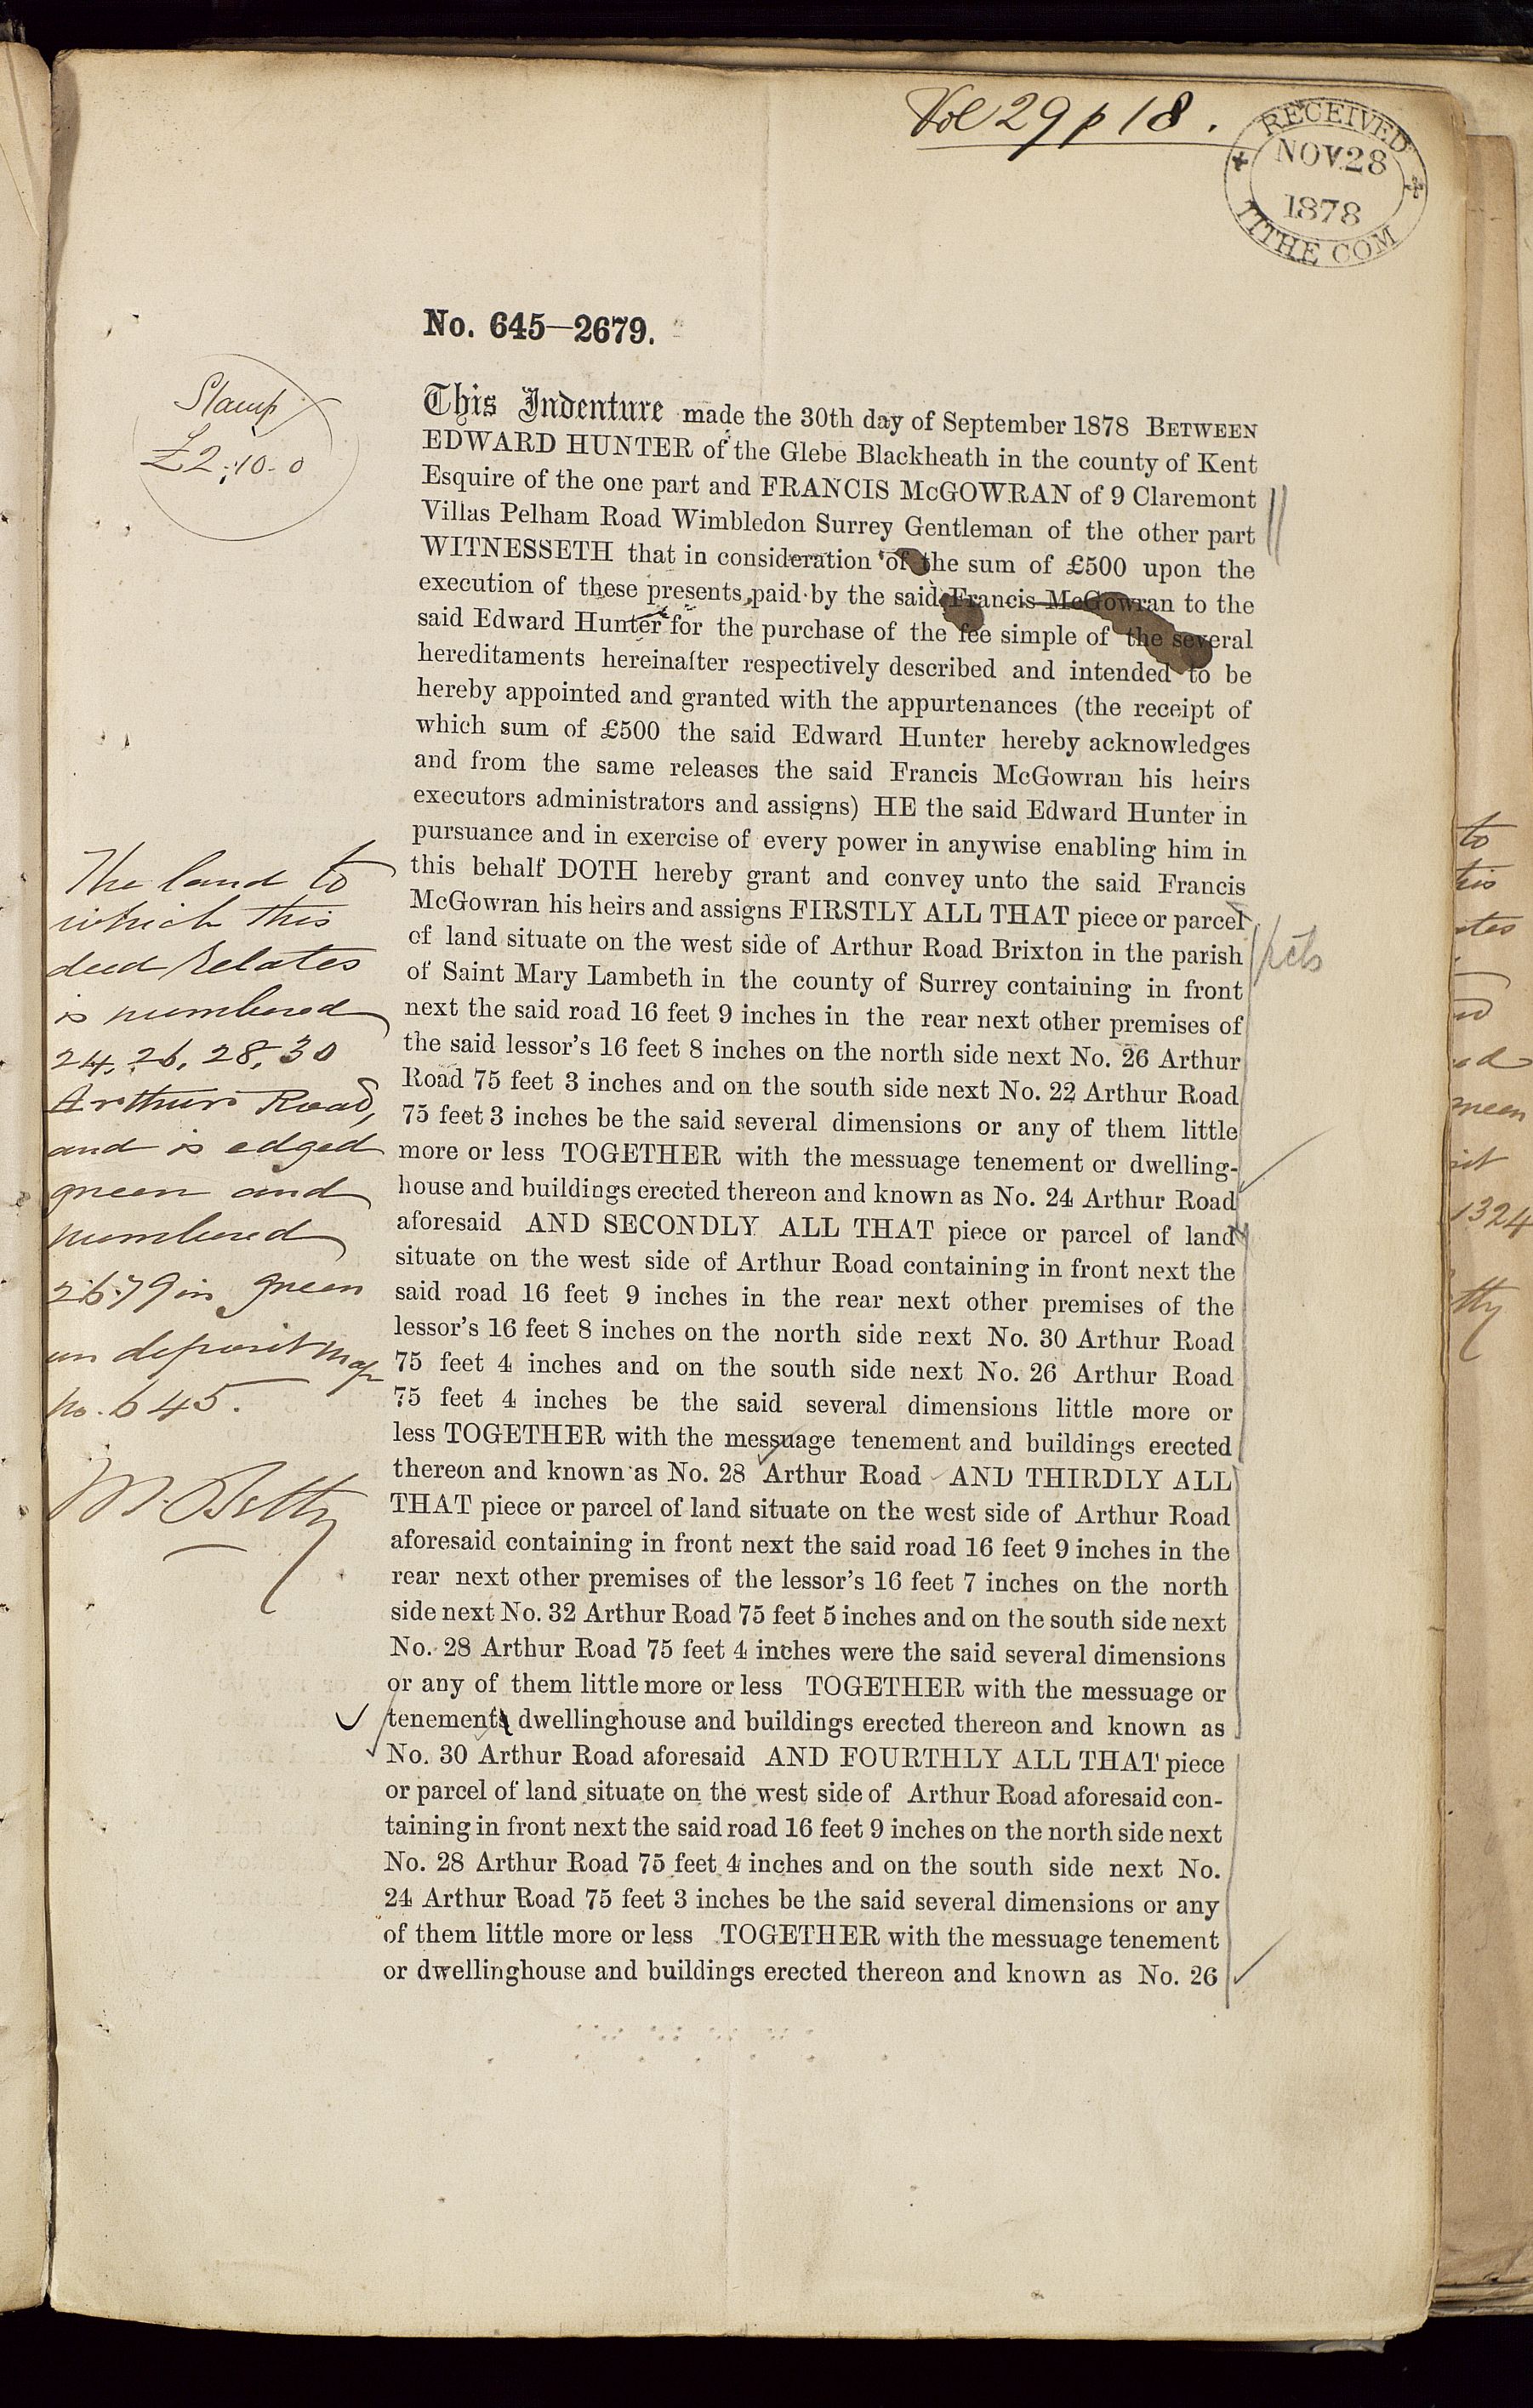 Vol 29 p 18.
RECEIVED
NOV.28
1878
TITHE COM
No. 645—2679.
Stamp
£2:10-0
This Indenture made the 30th day of September 1878 BETWEEN
EDWARD HUNTER of the Glebe Blackheath in the county of Kent
Esquire of the one part and FRANCIS McGOWRAN of 9 Claremont
Villas Pelham Road Wimbledon Surrey Gentleman of the other part
WITNESSETH that in consideration of the sum of £500 upon the
execution of these presents paid by the said Francis McGowran to the
said Edward Hunter for the purchase of the fee simple of the several
hereditaments hereinafter respectively described and intended to be
hereby appointed and granted with the appurtenances (the receipt of
which sum of £500 the said Edward Hunter hereby acknowledges
and from the same releases the said Francis McGowran his heirs
executors administrators and assigns) HE the said Edward Hunter in
pursuance and in exercise of every power in anywise enabling him in
this behalf DOTH hereby grant and convey unto the said Francis
McGowran his heirs and assigns FIRSTLY ALL THAT piece or parcel
of land situate on the west side of Arthur Road Brixton in the parish
of Saint Mary Lambeth in the county of Surrey containing in front
next the said road 16 feet 9 inches in the rear next other premises of
the said lessor's 16 feet 8 inches on the north side next No. 26 Arthur
Road 75 feet 3 inches and on the south side next No. 22 Arthur Road
75 feet 3 inches be the said several dimensions or any of them little
more or less TOGETHER with the messuage tenement or dwelling-
house and buildings erected thereon and known as No. 24 Arthur Road
aforesaid AND SECONDLY ALL THAT piece or parcel of land
situate on the west side of Arthur Road containing in front next the
said road 16 feet 9 inches in the rear next other premises of the
lessor's 16 feet 8 inches on the north side next No. 30 Arthur Road
75 feet 4 inches and on the south side next No. 26 Arthur Road
75 feet 4 inches be the said several dimensions little more or
less TOGETHER with the messuage tenement and buildings erected
thereon and known as No. 28 Arthur Road AND THIRDLY ALL
THAT piece or parcel of land situate on the west side of Arthur Road
aforesaid containing in front next the said road 16 feet 9 inches in the
rear next other premises of the lessor's 16 feet 7 inches on the north
side next No. 32 Arthur Road 75 feet 5 inches and on the south side next
No. 28 Arthur Road 75 feet 4 inches were the said several dimensions
or any of them little more or less TOGETHER with the messuage or
tenements dwellinghouse and buildings erected thereon and known as
No. 30 Arthur Road aforesaid AND FOURTHLY ALL THAT piece
or parcel of land situate on the west side of Arthur Road aforesaid con-
taining in front next the said road 16 feet 9 inches on the north side next
No. 28 Arthur Road 75 feet 4 inches and on the south side next No.
24 Arthur Road 75 feet 3 inches be the said several dimensions or any
of them little more or less TOGETHER with the messuage tenement
or dwellinghouse and buildings erected thereon and known as No. 26
The land to
which this
deed relates
is numbered
24, 26, 28, 30
Arthur Road,
and is edged
green and
numbered
2679 in green
on deposit map
No. 645.
M. Betty
to
this
ates
green
1324
tty